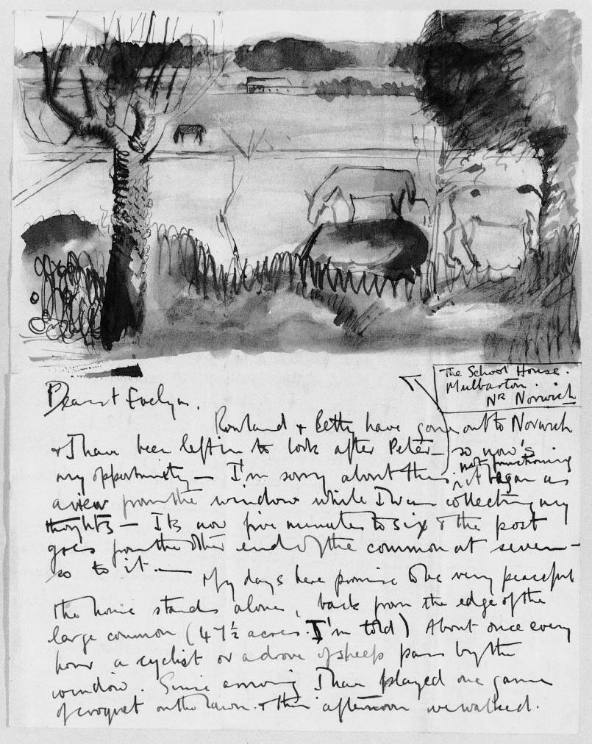 The School House.
Mulbarton.
Nr Norwich
Dearest Evelyn.
Rowland & Betty have gone out to Norwich
& I have been left in to look after Peter – so now's
my opportunity – I'm sorry about this, it began as
a view from the window while I was collecting my
thoughts – Its now five minutes to six & the post
goes from the other end of the common at seven –
so to it. —
My days here promise to be very peaceful
the house stands alone, back from the edge of the
large common (47½ acres. I'm told) About once every
hour a cyclist or a drove of sheep pass by the
window. Since arriving I have played one game
of croquet on the lawn. & this afternoon we walked.